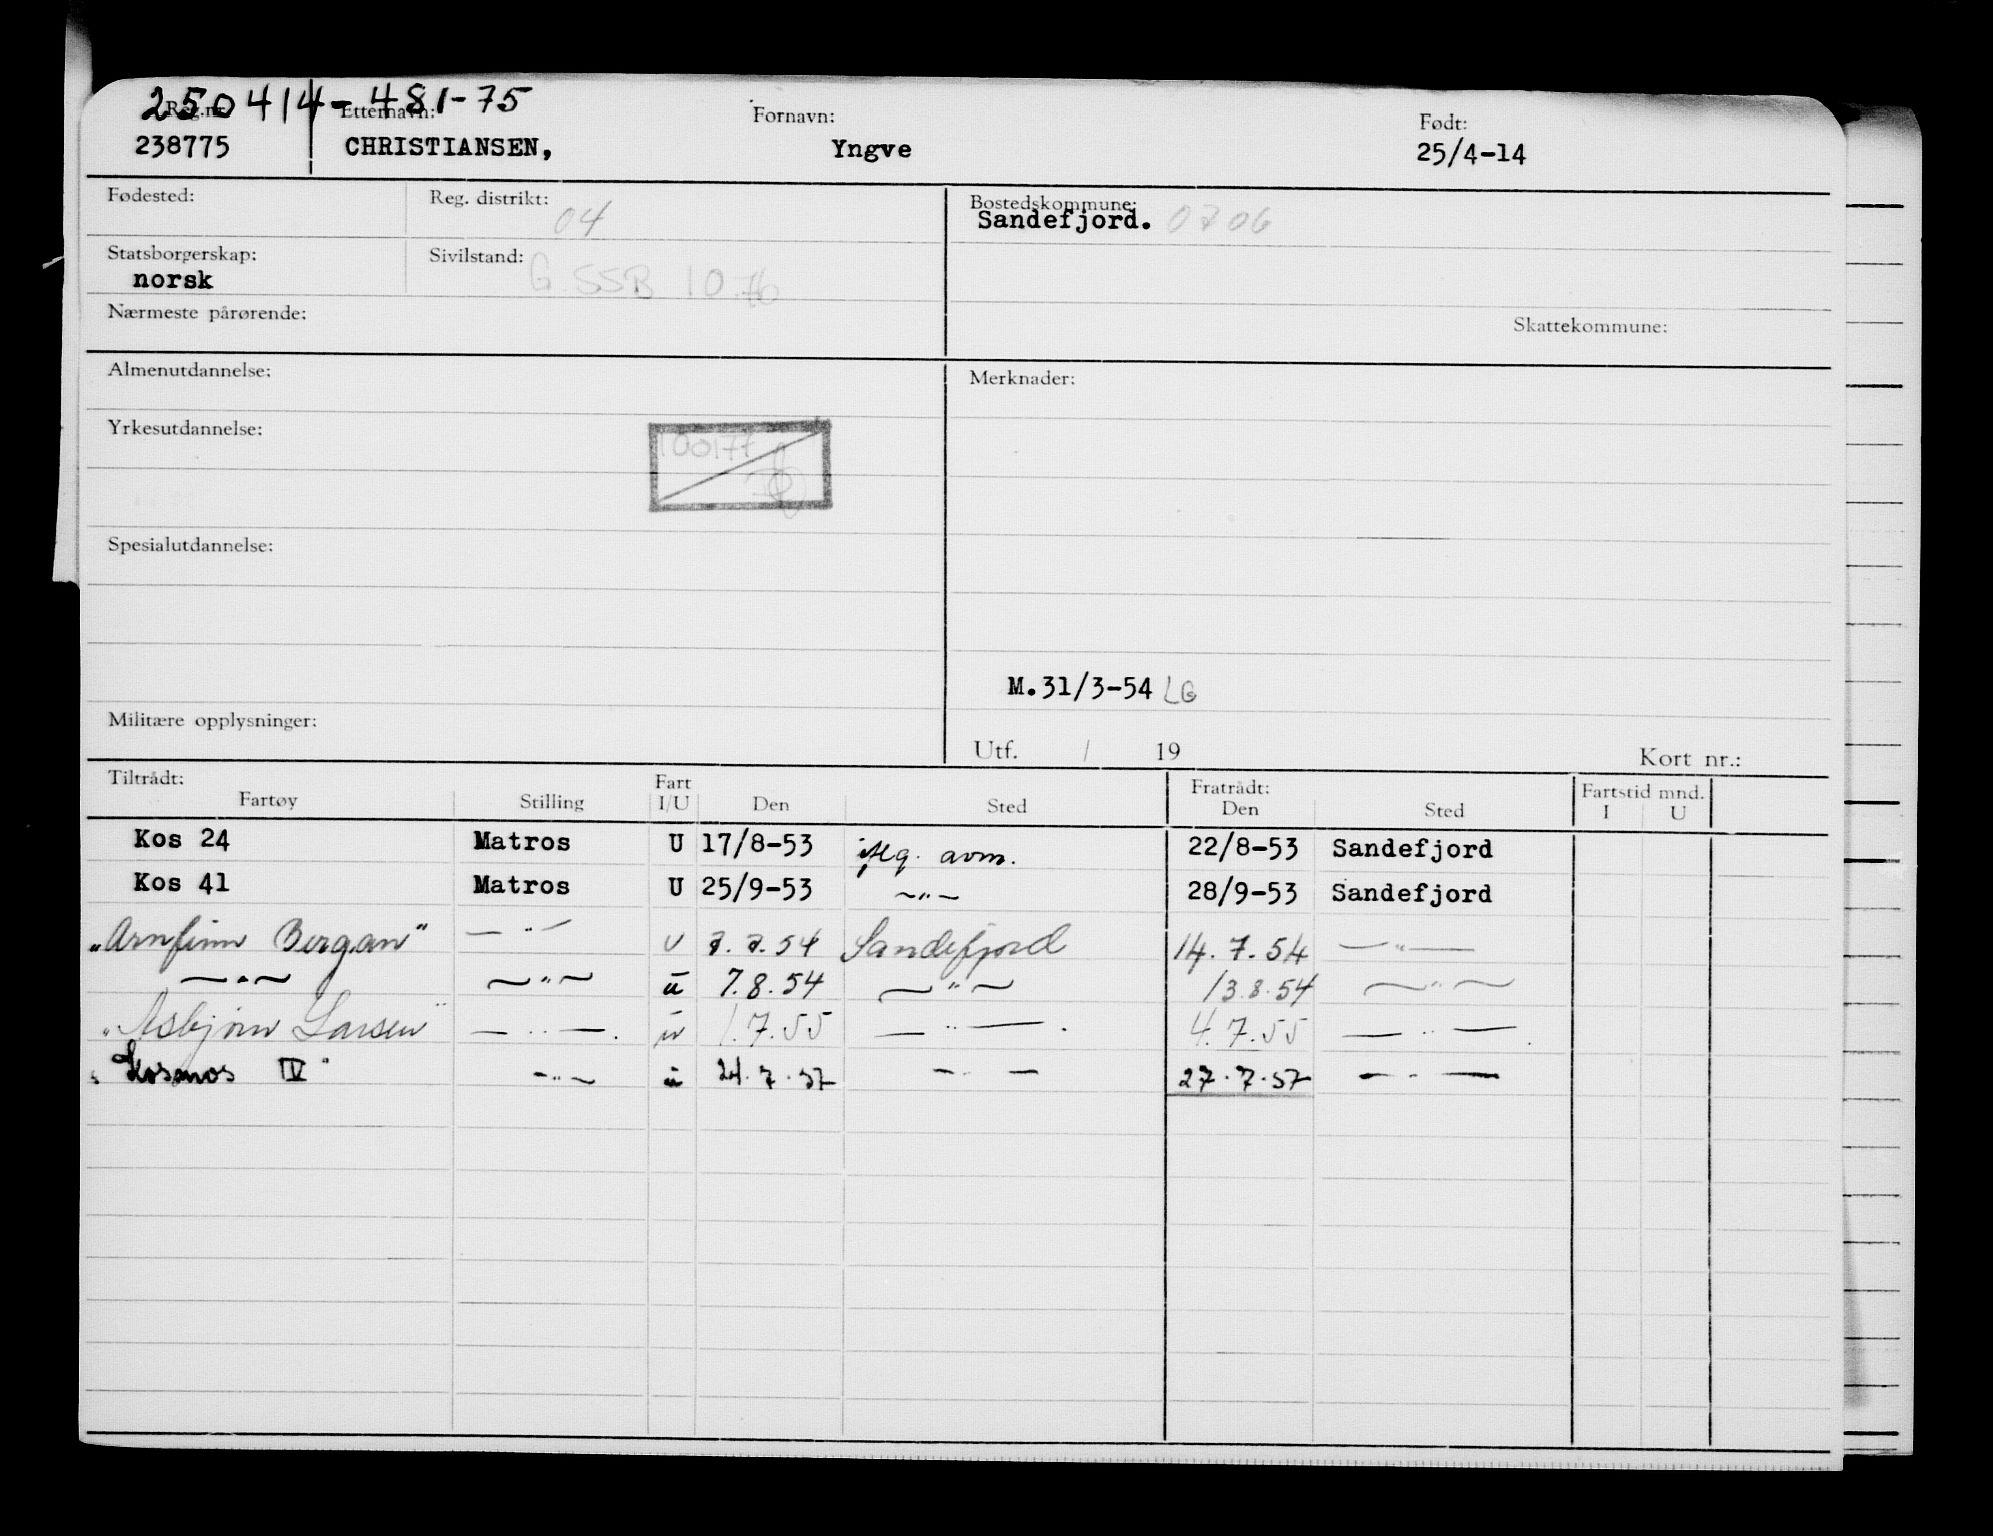 250414-481-75
Reg.nr. Etternavn: Fornavn: Født:
238775 CHRISTIANSEN, Yngve 25/4-14
Fødested: Reg. distrikt: 04 Bostedskommune:
Sandefjord. 0706
Statsborgerskap: Sivilstand:
norsk G. SSB 10.76
Nærmeste pårørende: Skattekommune:
Almenutdannelse: Merknader:
Yrkesutdannelse:
100177
Spesialutdannelse:
M.31/3-54 LG
Militære opplysninger:
Utf. / 19 Kort nr.:
Tiltrådt: Fart Fratrådt: Fartstid mnd.
Fartøy Stilling I/U Den Sted Den Sted I U
Kos 24 Matros U 17/8-53 iflg. avm. 22/8-53 Sandefjord
Kos 41 Matros U 25/9-53 —"— 28/9-53 Sandefjord
"Arnfinn Bergan" —"— U 7.7.54 Sandefjord 14.7.54 —"—
—"— —"— u 7.8.54 —"— 13.8.54 —"—
"Asbjørn Larsen" —"—. u 1.7.55 —"—. 4.7.55 —"—.
"Kosmos IV" —"— u 24.7.57 —"— 27.7.57 —"—